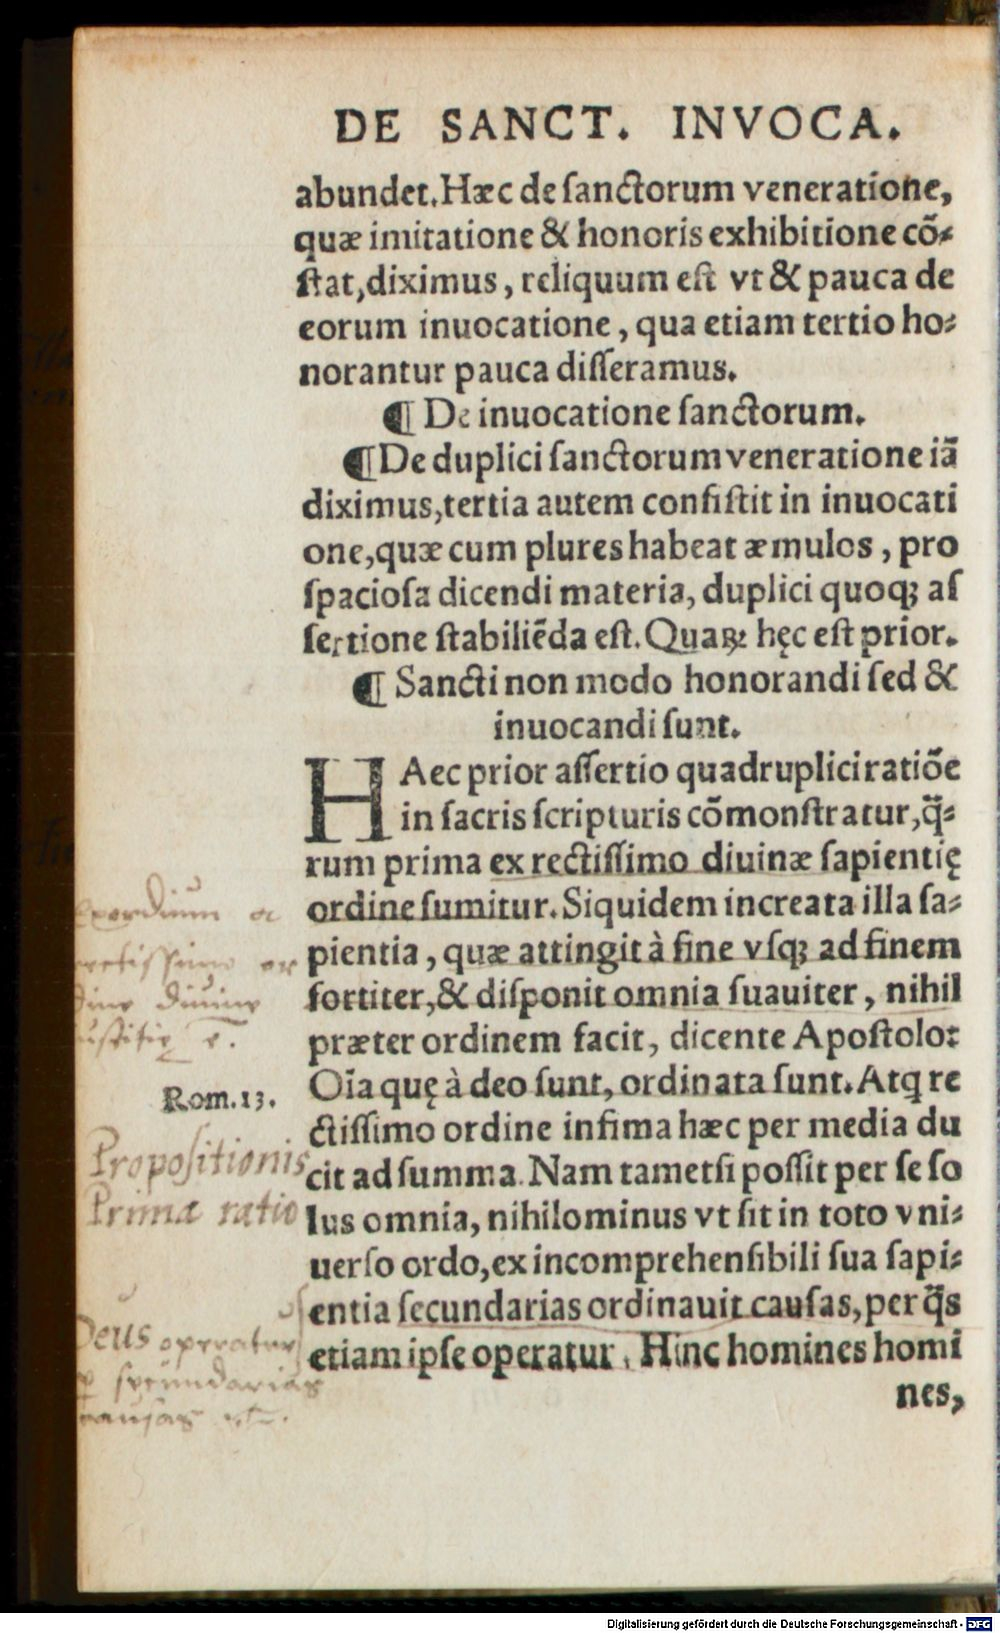 DE SANCT. INVOCA.
abundet. Hæc de ſanctorum veneratione,
quæ imitatione & honoris exhibitione cõ-
ſtat, diximus, reliquum eſt vt & pauca de
eorum inuocatione, qua etiam tertio ho-
norantur pauca diſſeramus.
¶ De inuocatione ſanctorum.
¶ De duplici ſanctorum veneratione iã
diximus, tertia autem conſiſtit in inuocati
one, quæ cum plures habeat æmulos, pro
ſpacioſa dicendi materia, duplici quoq; aſ
ſertione ſtabiliẽda eſt. Quaꝝ hęc eſt prior.
¶ Sancti non modo honorandi ſed &
inuocandi ſunt.
HAec prior aſſertio quadruplici ratiõe
in ſacris ſcripturis cõmonſtratur, q̃-
rum prima ex rectiſſimo diuinæ ſapientię
ordine ſumitur. Siquidem increata illa ſa-
pientia, quæ attingit à fine vſq; ad finem
fortiter, & diſponit omnia ſuauiter, nihil
præter ordinem facit, dicente Apoſtolo:
Oĩa quę à deo ſunt, ordinata ſunt. Atq re
ctiſſimo ordine infima hæc per media du
cit ad ſumma. Nam tametſi poſſit per ſe ſo
lus omnia, nihilominus vt ſit in toto vni-
uerſo ordo, ex incomprehenſibili ſua ſapi-
entia ſecundarias ordinauit cauſas, per q̃s
etiam ipſe operatur. Hinc homines homi
nes,
Rom. 13.
Propositionis
Prima ratio
Deus operatur
secundarias
causas
Digitalisierung gefördert durch die Deutsche Forschungsgemeinschaft - DFG